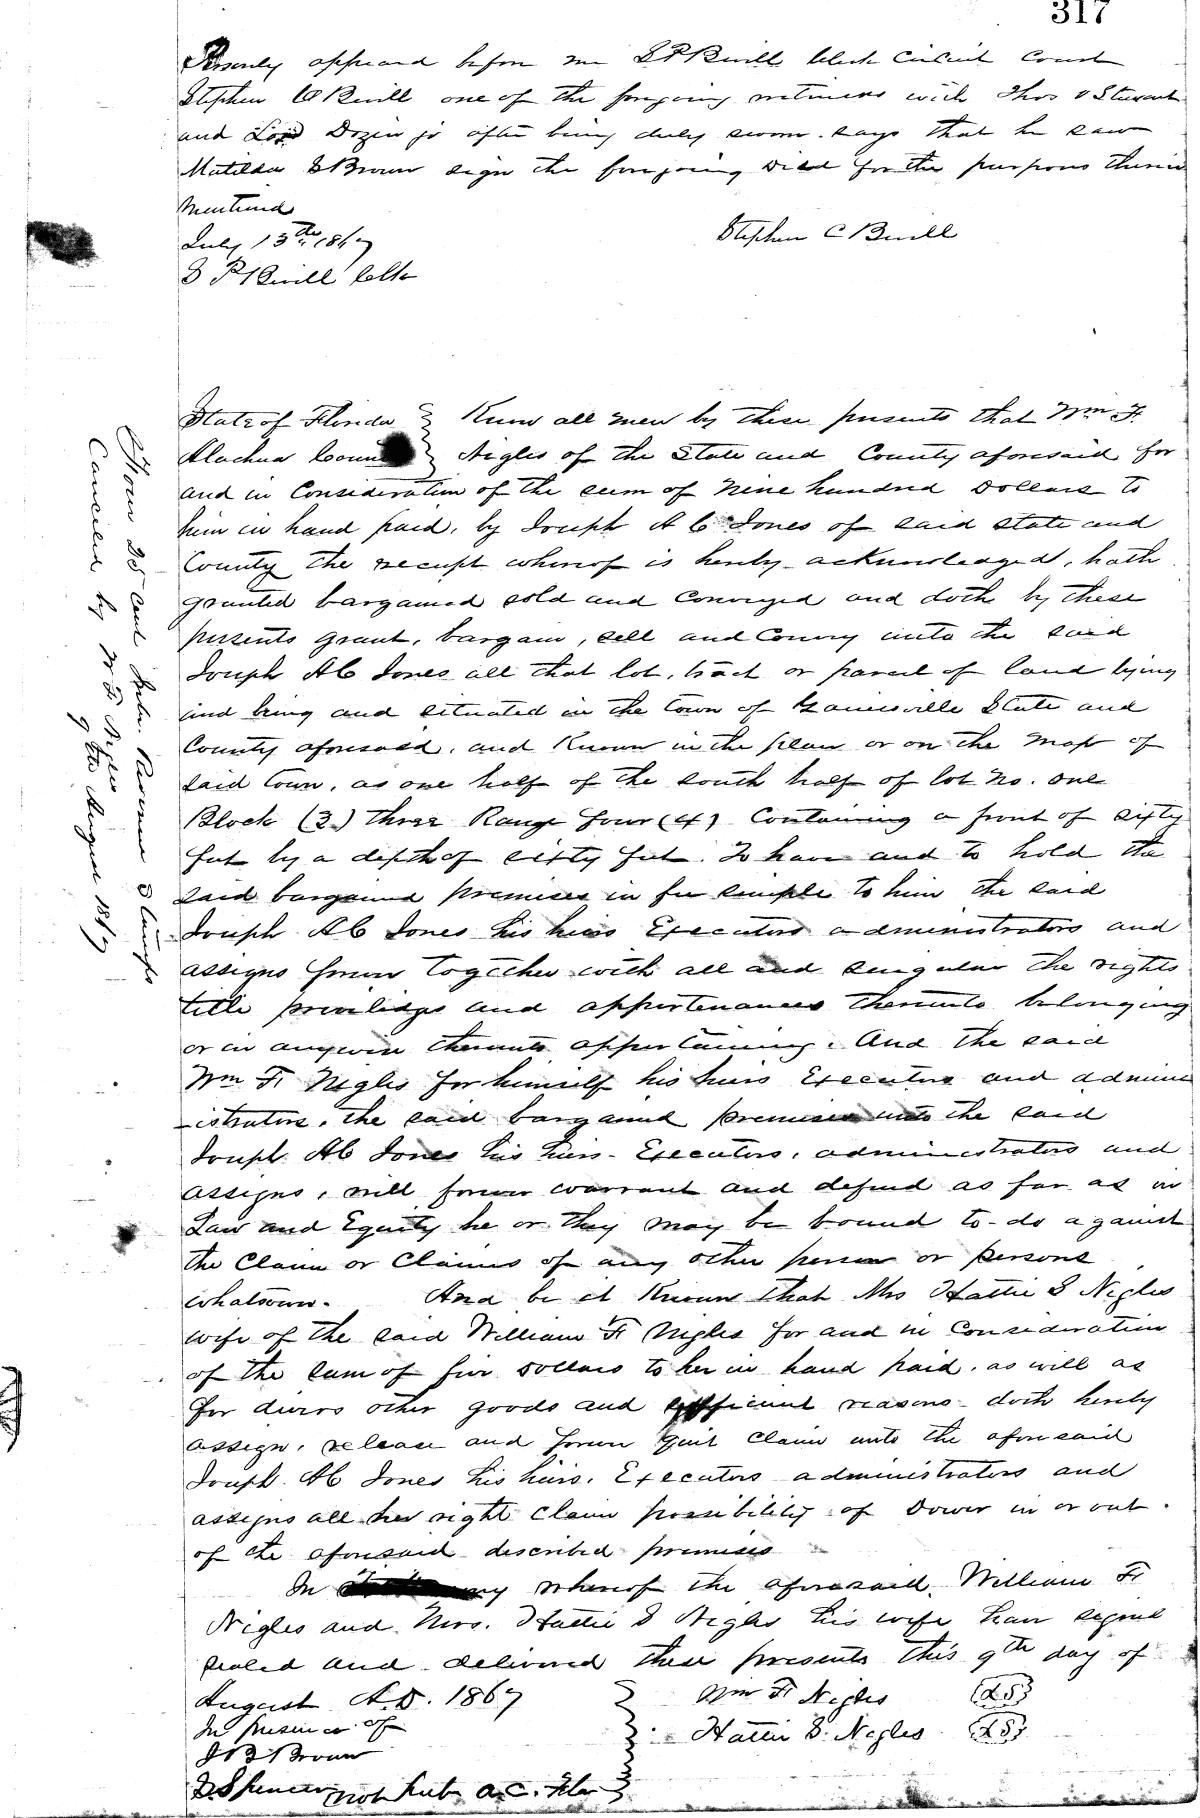 317
Personly appeard before me S P Bevill clerk Circuit Court
Stephen C Bevill one of the foregoing witness with Thos V Stewart
and Dozier jr after being duly sworn says that he saw
Matilda S Brown sign the foregoing Deed for the purposes therein
Mentioned
July 13th 1867
Stephen C Bevill
S P Bevill Clk
State of Florida
Alachua County
Know all men by these presents that Wm F.
Nigles of the State and County aforesaid for
and in Consideration of the sum of Nine hundred Dollars to
him in hand paid, by Joseph A C Jones of said state and
County the receipt whereof is hereby acknowledged, hath
granted bargained sold and conveyed and doth by these
presents grant, bargain, sell and Convey unto the said
Joseph A C Jones all that lot, tract or parcel of land lying
and being and situated in the town of Gainesville State and
County aforesaid, and Known in the plan or on the Map of
said town, as one half of the south half of lot No. one
Block (3.) three Range four (4) Containing a front of sixty
feet by a depth of sixty feet. To have and to hold the
said bargained premises in fee simple to him the said
Joseph A C Jones his heirs Executors administrators and
assigns forever together with all and singular the rights
title priviledges and appertenances thereunto belonging
or in anywise thereunto appertaining. And the said
Wm F. Nigles for himself his heirs Executors and admin
-istrators, the said bargained premises unto the said
Joseph A C Jones his heirs Executors, administrators and
assigns, will forever warrant and defend as far as in
Law and Equity he or they may be bound to do against
the Claim or Claims of any other person or persons
whatsoever. And be it Known that Mrs Hattie S Nigles
wife of the said William F. Nigles for and in Consideration
of the sum of five Dollars to her in hand paid, as well as
for divers other goods and sufficient reasons doth hereby
assign, release and forever quit claim unto the aforesaid
Joseph A C Jones his heirs, Executors administrators and
assigns all her right Claim possibility of Dower in or out
of the aforesaid described premises
In whereof the aforesaid William F.
Nigles and Mrs. Hattie S Nigles his wife have signed
sealed and delivered these presents this 9th day of
August A.D. 1867
Wm F. Nigles (LS)
In presence of
Hattie S. Nigles (LS)
Brown
D. Spencer not Pub A.C. Fla
Hour 25 cent Inter. Revenue Stamps
Canceled by W F Nigles
9th August 1867